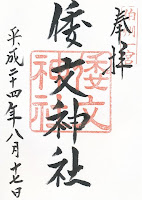 奉拝
伯耆一宮
倭文神社
倭文神社
平成二十四年八月十七日